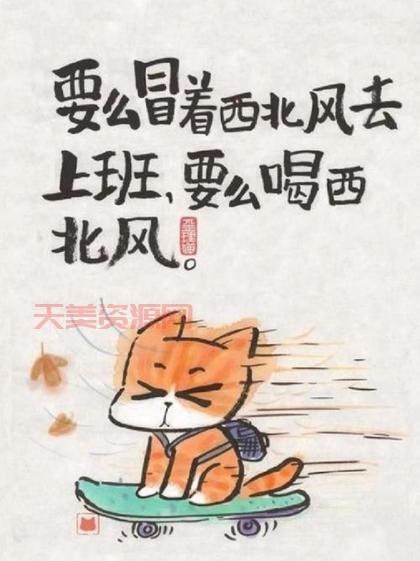 要么冒着西北风去
上班、要么喝西
北风。
天美资源网